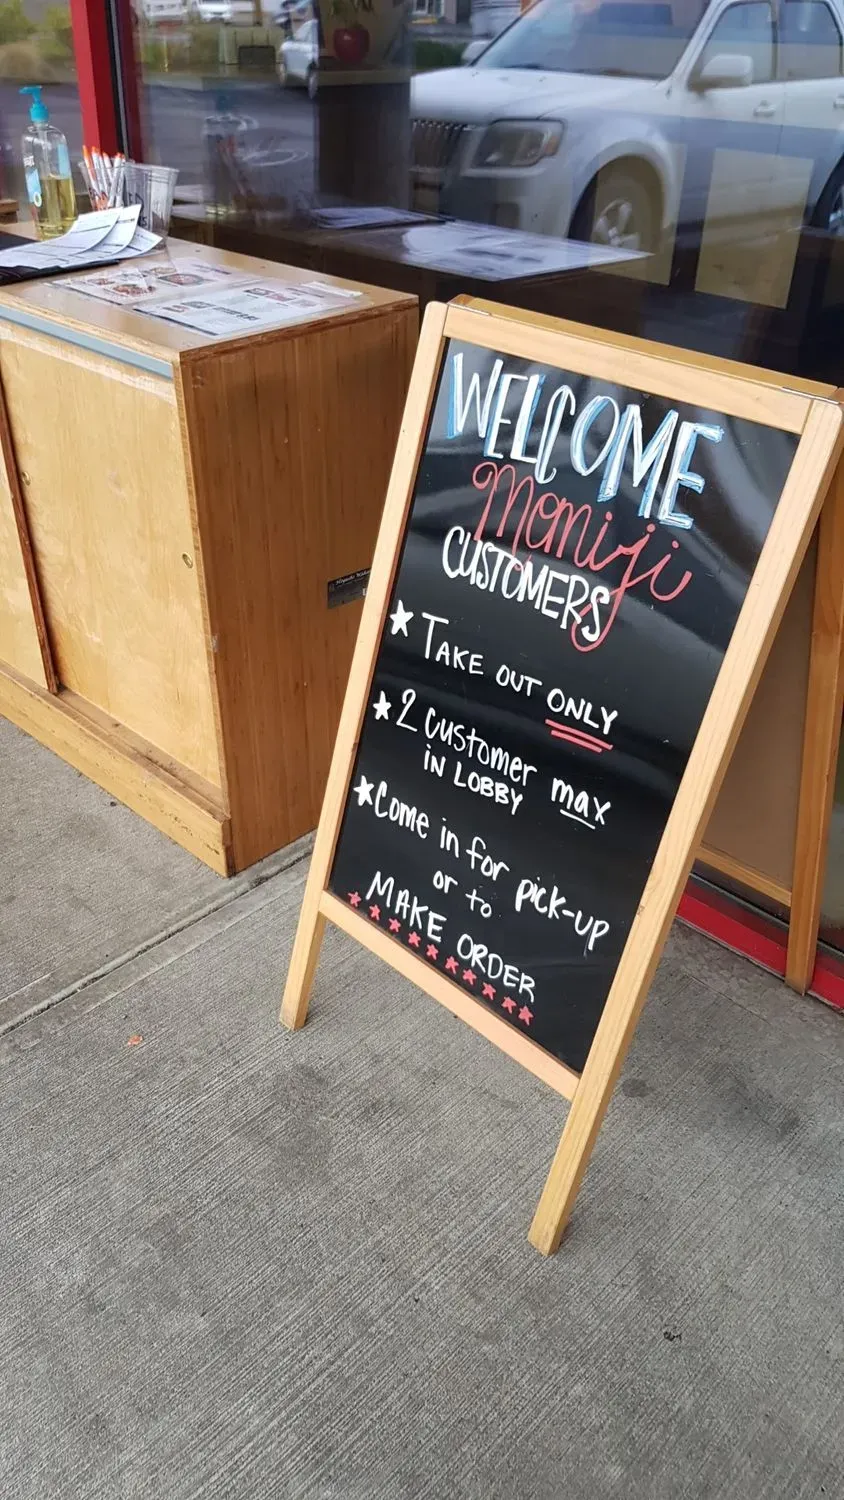 WELCOME
Momiji
CUSTOMERS
★ TAKE OUT ONLY
★ 2 customer max
IN LOBBY
★ Come in for pick-up
or to
MAKE ORDER